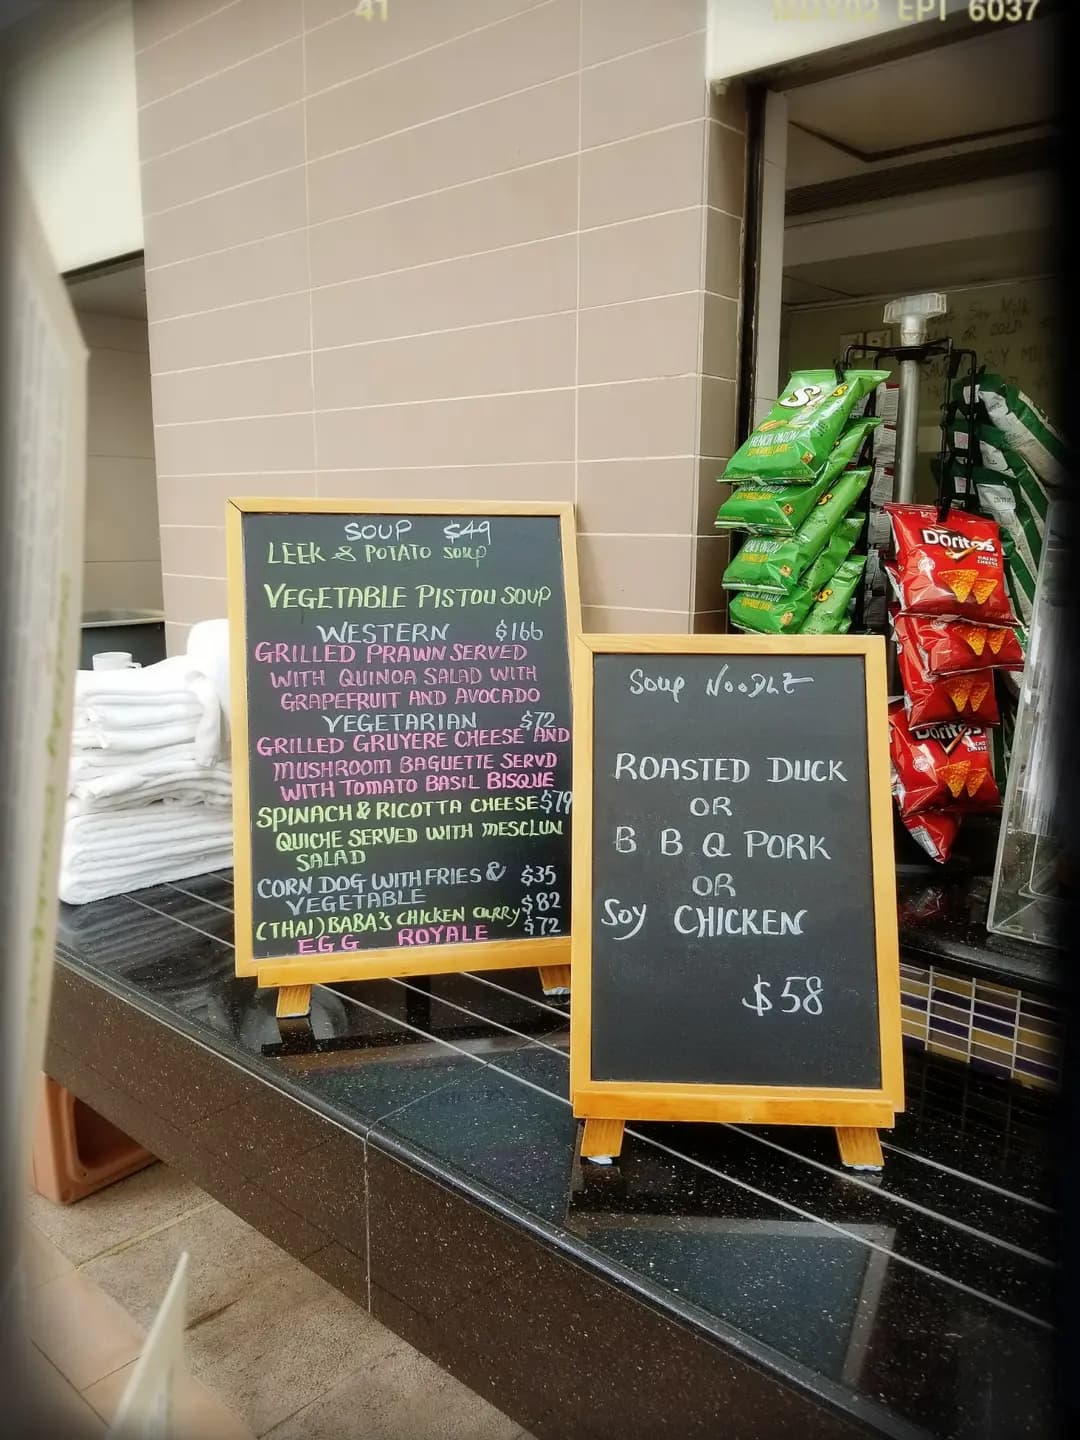 41
EPT 6037
SOUP $49
LEEK & POTATO SOUP
VEGETABLE PISTOU SOUP
WESTERN $166
GRILLED PRAWN SERVED
WITH QUINOA SALAD WITH
GRAPEFRUIT AND AVOCADO
VEGETARIAN $72
GRILLED GRUYERE CHEESE AND
MUSHROOM BAGUETTE SERVD
WITH TOMATO BASIL BISQUE
SPINACH & RICOTTA CHEESE $79
QUICHE SERVED WITH MESCLUN
SALAD
CORN DOG WITH FRIES & $35
VEGETABLE $82
(THAI) BABA'S CHICKEN CURRY $72
EGG ROYALE
SOUP NOODLE
ROASTED DUCK
OR
B B Q PORK
OR
SOY CHICKEN
$58
FRENCH ONION
Doritos
NACHO
CHEESE
Doritos
Soy Milk
OR COLD